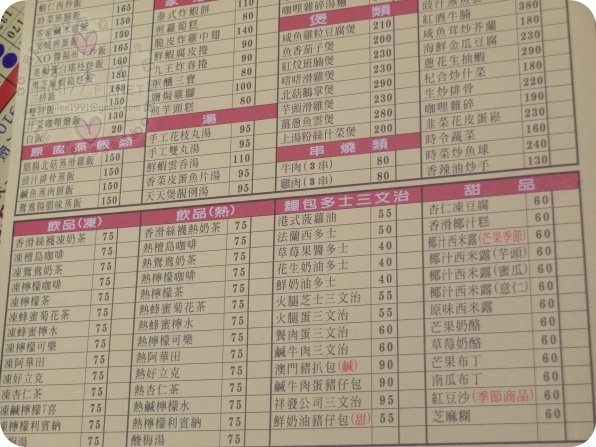 蝦仁西炒飯 165
時菜班腩飯 130
客家鹹木魚飯 130
泰式炸蝦餅
煎蘿蔔糕
脆皮炸雞中翅 140
鮮蝦腐皮捲 90
九王炸春捲 90
煎釀三寶 80
鹽焗雞腳
煎芋頭糕 80
白飯 20
原盅蒸飯類
臘腸北菇蒸滑雞飯 150
豉汁排骨蒸飯 150
鹹魚蒸肉餅飯 150
鴛鴦腸腊味蒸飯 150
湯
手工花枝丸湯 95
手工雙丸湯 95
鮮蝦雲吞湯 110
香菜皮蛋魚片湯 95
天天煲靚例湯 95
咖哩雜碎湯麵
煲類
咸魚雞粒豆腐煲 210
魚香茄子煲 200
紅炆班腩煲 200
啫啫滑雞煲 200
北菇鵝掌煲 200
芋頭滑雞煲 200
薑蔥魚雲煲 200
上湯粉絲什菜煲 200
串燒類
牛肉(3串) 80
雞肉(3串) 80
豉汁蒸魚雲 380
紅酒牛腩 220
咸魚茸炒芥蘭 220
海鮮金瓜豆腐 220
蔥花生抽蝦 220
杞合炒什菜 220
生炒排骨 220
咖哩雜碎 220
韭菜花皮蛋崧 220
時令蔬菜 160
時菜炒魚球 240
香辣油炒手 130
飲品(凍)
香滑絲襪凍奶茶 75
凍檀島咖啡 75
凍鴛鴦奶茶 75
凍檸檬咖啡 75
凍檸檬茶 75
凍蜂蜜菊花茶 75
凍蜂蜜檸水 75
凍檸檬可樂 75
凍阿華田 75
凍好立克 75
凍杏仁茶 75
凍鹹檸檬7喜 75
凍檸檬利賓納 75
飲品(熱)
香滑絲襪熱奶茶 75
熱檀島咖啡 75
熱鴛鴦奶茶 75
熱檸檬咖啡 75
熱檸檬茶 75
熱蜂蜜菊花茶 75
熱蜂蜜檸水 75
熱檸檬可樂 75
熱阿華田 75
熱好立克 75
熱杏仁茶 75
熱鹹檸檬水 75
熱檸檬利賓納 75
酸梅湯 75
麵包多士三文治
港式菠蘿油 55
法蘭西多士 50
草莓果醬多士 40
花生奶油多士 40
鮮奶油多士 40
火腿芝士三文治 55
火腿蛋三文治 55
餐肉蛋三文治 60
鹹牛肉三文治 60
澳門豬扒包(鹹) 90
鹹牛肉蛋豬仔包 90
祥發公司三文治 95
鮮奶油豬仔包(甜) 55
甜品
杏仁凍豆腐 60
香滑椰汁糕 60
椰汁西米露(芒果季節) 60
椰汁西米露(芋頭) 60
椰汁西米露(蜜瓜) 60
椰汁西米露(薏仁) 60
原味西米露 60
芒果奶酪 60
草莓奶酪 60
芒果布丁 60
南瓜布丁 60
紅豆沙(季節商品) 60
芝麻糊 60